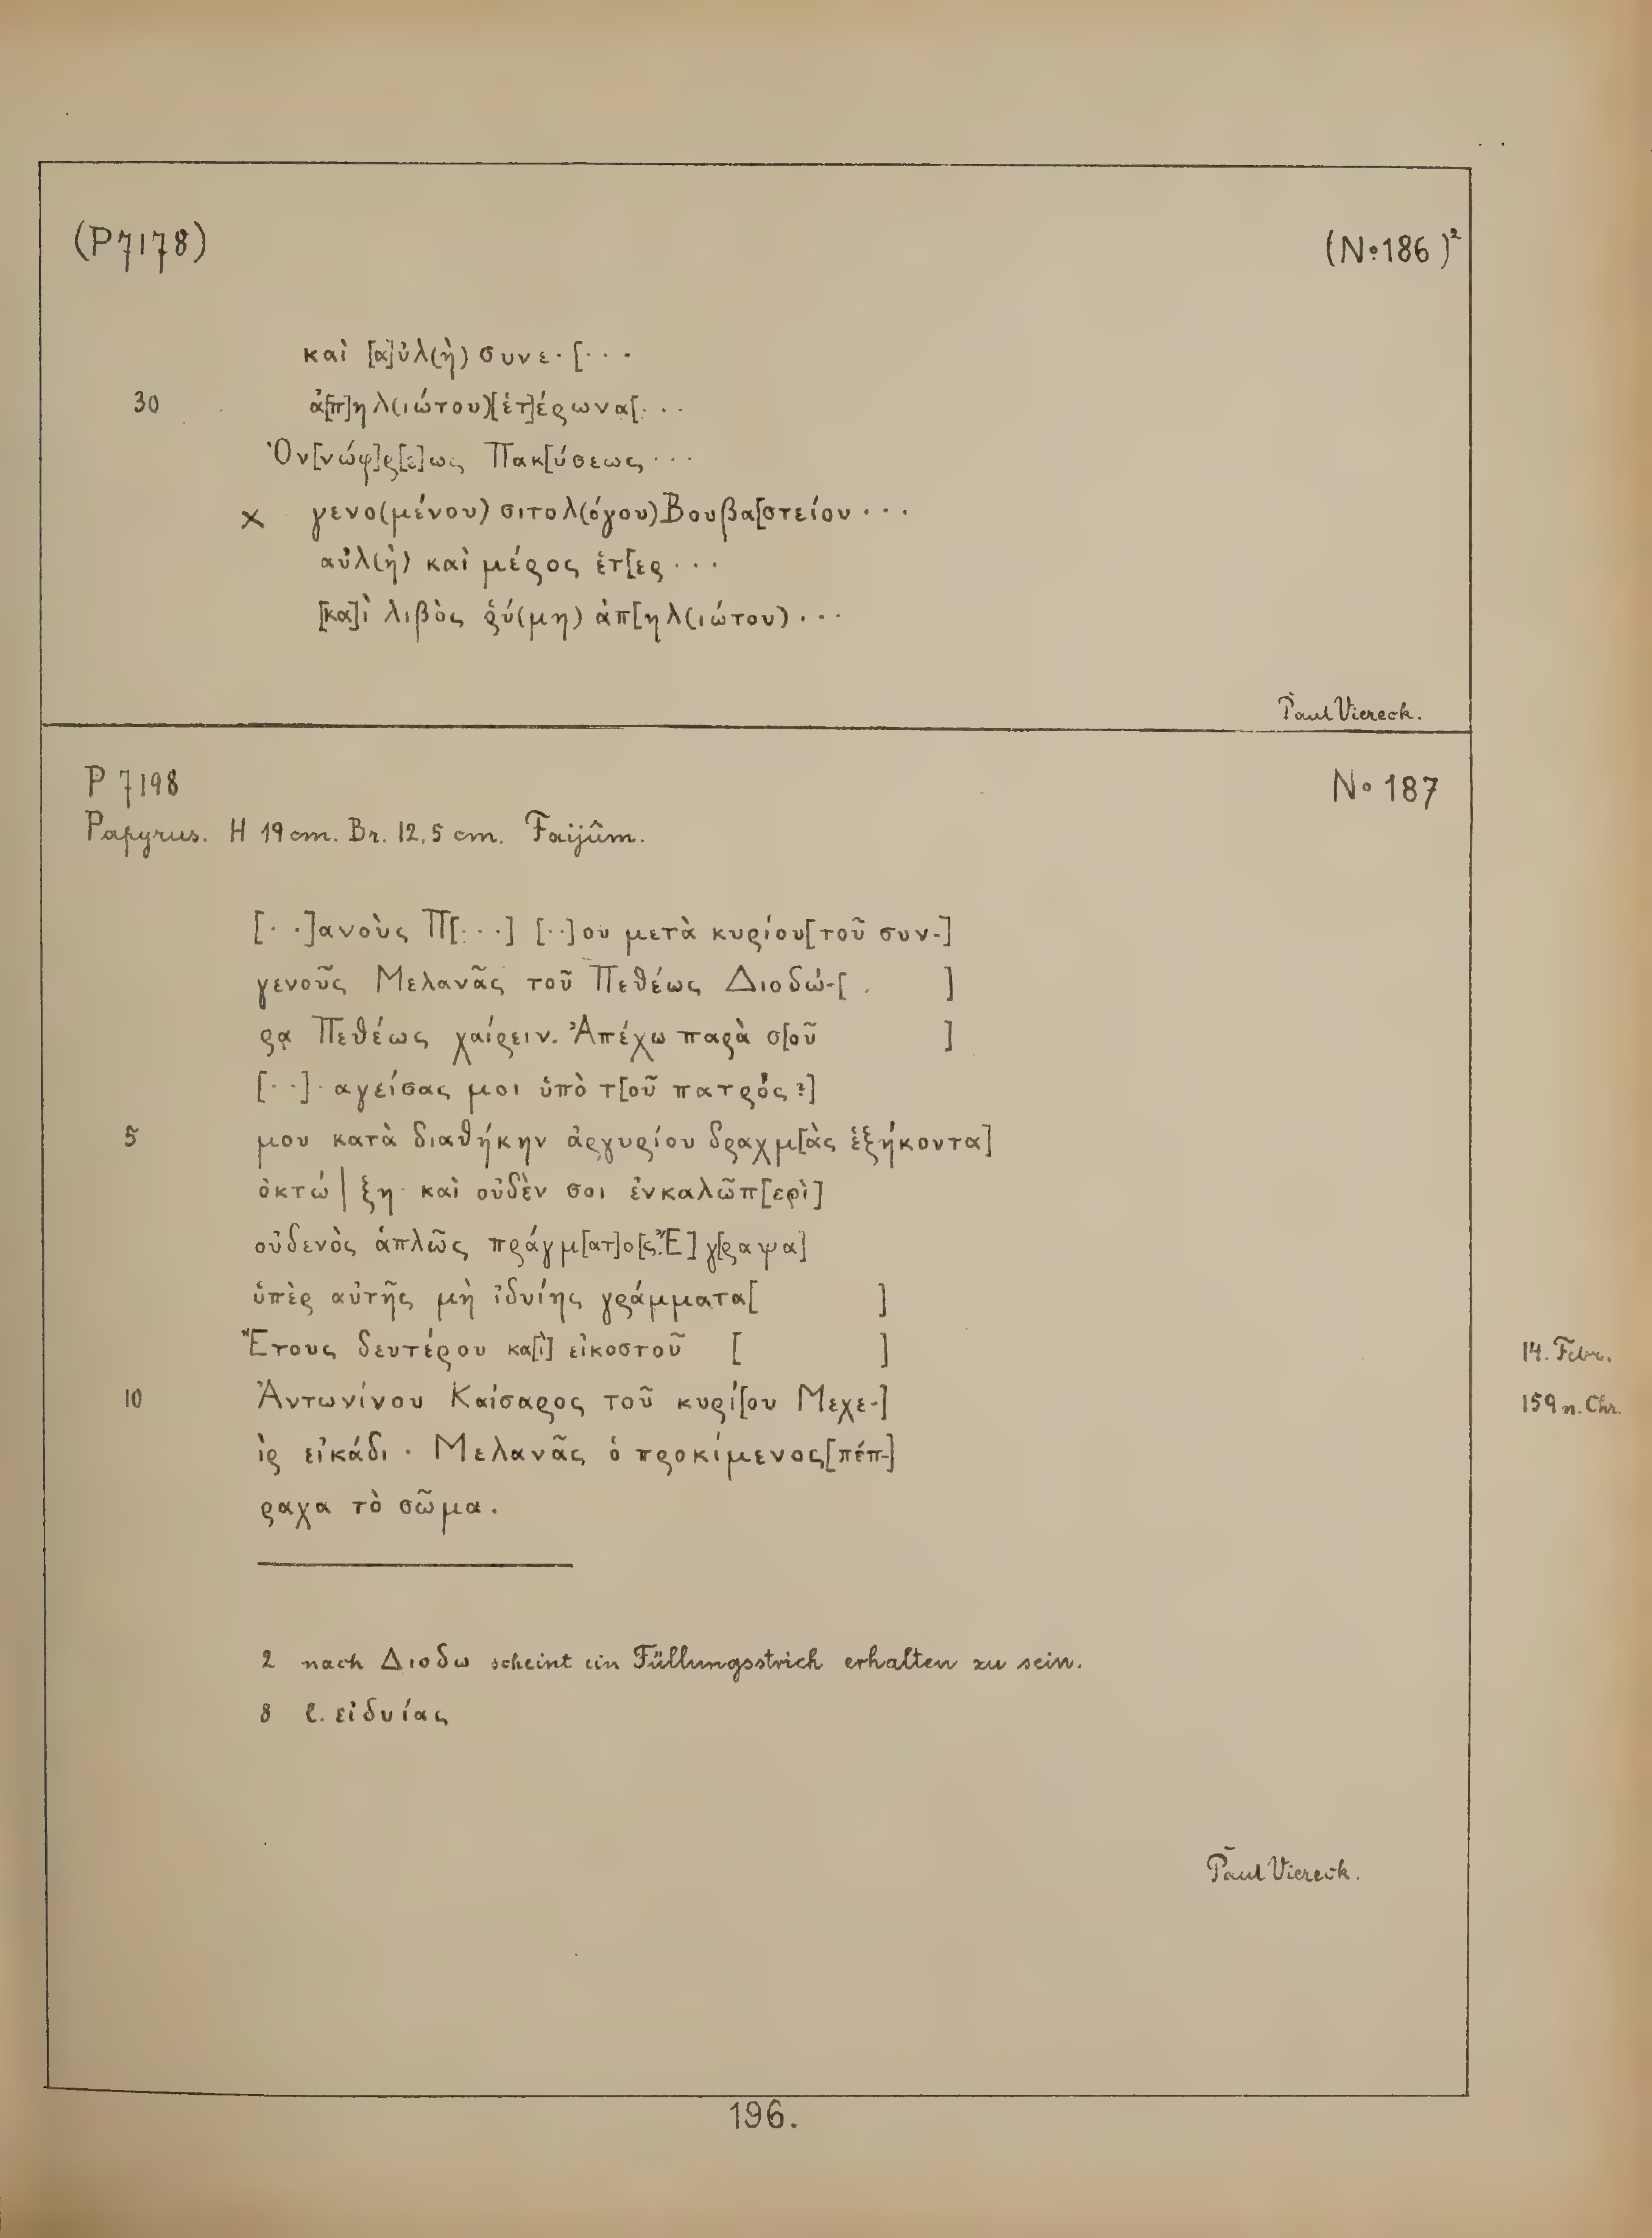 (P 7178) (No. 186)²
καὶ [α]ὐλ(ὴ) συνε·[···
30 ἀ[π]ηλ(ιώτου)[ἑτ]έρωνα[···
Ὀν[νώφ]ρ[ε]ως Πακ[ύσεως···
× γενο(μένου) σιτολ(όγου) Βουβα[στείου···
αὐλ(ὴ) καὶ μέρος ἑτ[ερ···
[κα]ὶ λιβὸς ῥύ(μη) ἀπ[ηλ(ιώτου)···
Paul Viereck.
P 7198 No 187
Papyrus. H 19 cm. Br. 12,5 cm. Faijûm.
[··]ανοὺς Π[···] [··]ου μετὰ κυρίου[τοῦ συν-]
γενοῦς Μελανᾶς τοῦ Πεθέως Διοδώ-[ ]
ρᾳ Πεθέως χαίρειν. Ἀπέχω παρὰ σ[οῦ ]
[··]·αγείσας μοι ὑπὸ τ[οῦ πατρός?]
5 μου κατὰ διαθήκην ἀργυρίου δραχμ[ὰς ἑξήκοντα]
ὀκτώ | ξη· καὶ οὐδὲν σοι ἐνκαλῶπ[ερὶ]
οὐδενὸς ἁπλῶς πράγμ[ατ]ο[ς. Ἔ]γ[ραψα]
ὑπὲρ αὐτῆς μὴ ἰδυίης γράμματα[ ]
Ἔτους δευτέρου κα[ὶ] εἰκοστοῦ [ ] 14. Febr.
10 Ἀντωνίνου Καίσαρος τοῦ κυρί[ου Μεχε-] 159 n. Chr.
ὶρ εἰκάδι· Μελανᾶς ὁ προκίμενος[πέπ-]
ραχα τὸ σῶμα.
2 nach Διοδω scheint ein Füllungsstrich erhalten zu sein.
8 l. εἰδυίας
Paul Viereck.
196.